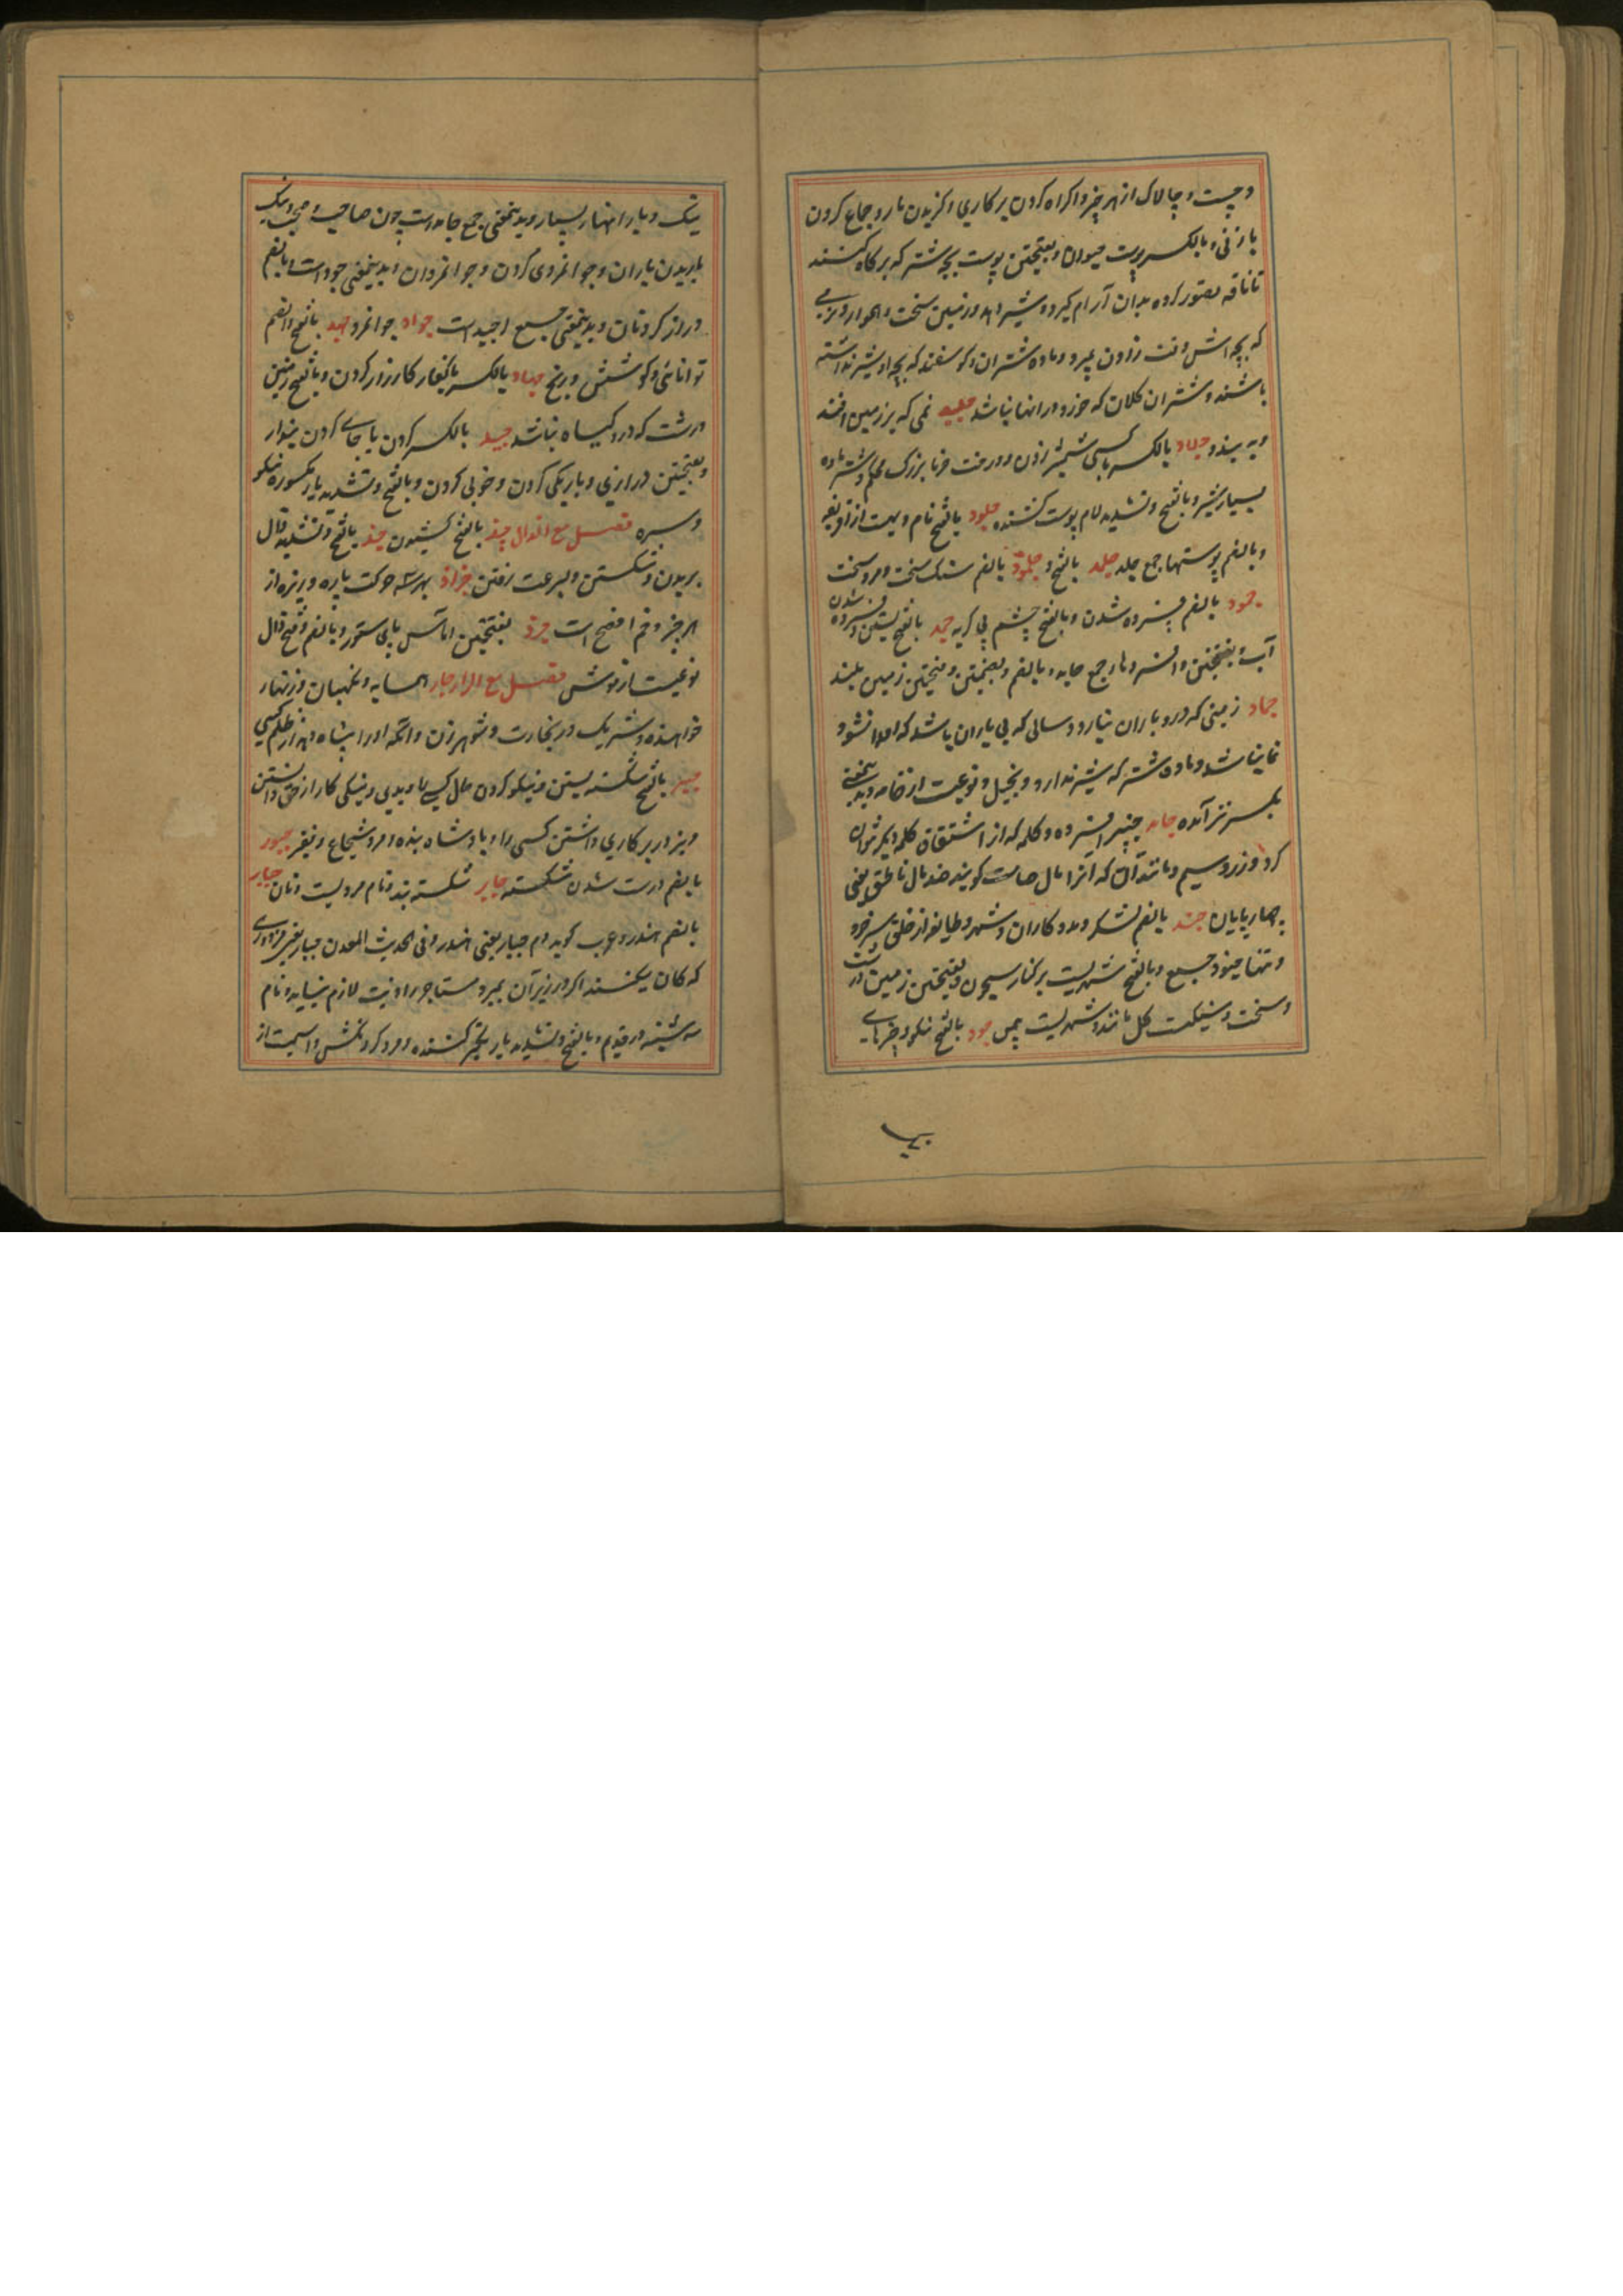 و چست و چالاک از هر چیز و اکراه کردن بر کاری و گزیدن مار و جماع کردن
با زنی و بالکسر پوست حیوان و بفتحتین پوست بچه شتر که بر کاه کنند
تا ناقه تصور کرده بدان آرام گیرد و شیر دهد و زمین سخت و هموار و بزی
که بچه اش وقت زادن بمیرد و ماده شتران و گوسفند که بچه و شیر نداشته
باشند و شتران کلان که خورد در انها نباشد جلید نمی که بر زمین افتد
و به بندد جلاد بالکسر با کسی شمشیر زدن و درخت خرما بزرگ محکم و شتر ماده
بسیار شیر و بالفتح و تشدید لام پوست کشنده جلود بالفتح نام دهیست از افریقیه
و بالضم پوستها جمع جلد جلمد بالفتح و جلمود بالضم سنگ سخت و مرد سخت
جمود بالضم فسرده شدن و بالفتح چشم بی گریه جمد بالفتح بستن و فسرده شدن
آب و بفتحتین و افسرد ها جمع جامد و بالضم و بضمتین و فتحتین زمین بلند
جماد زمینی که درو باران نبارد و سالی که بی باران باشد که اصلا نشو و
نما نباشد و ماده شتر که شیر ندارد و بخیل و نوعیست از جامه و بدینمعنی
بکسر نیز آمده جامد چیز افسرده و کلمه که از اشتقاق کلمه دیگر نتوان
کرد و زر و سیم و مانند آن که آنرا مال صامت گویند ضد مال ناطق یعنی
چهارپایان جند بالضم لشکر و مددکاران و شهر و طایفه از خلق سر خود
و تنها جنود جمع و بالفتح شهریست بر کنار سیحون و بفتحتین زمین درشت
و سخت و سنگیست گل مانند و شهریست بیمن جود بالفتح نیکو و چیزهای
نیک و باران بسیار و بدینمعنی جمع جاید است چون صاحب و صحب و نیک
باریدن باران و جوانمردی کردن و جوانمردان و بدینمعنی جود است و بالضم
دراز گردنان و بدینمعنی جمع اجید است جواد جوانمرد جهد بالفتح و الضم
توانائی و کوشش و رنج جهاد بالکسر با کفار کارزار کردن و بالفتح زمین
درشت که درو گیاه نباشد جید بالکسر گردن یا جای گردن بند
و بفتحتین درازی و باریکی گردن و خوبی گردن و بالفتح و تشدید یاء مکسوره نیکو
و سره فصل مع الذال جبذ بالفتح کشیدن جذ بالفتح و تشدید ذال
بریدن و شکستن و بسرعت رفتن جذاذ بهر سه حرکت پاره و ریزه از
هر چیز و ضم افصح است جرذ بفتحتین اماس پای ستور و بالضم و فتح ذال
نوعیست از موش فصل مع الراء جار همسایه و نگهبان و زنهار
خواهنده و شریک در تجارت و شوهر زن و آنکه او را پناه دهند از ظلم کسی
جبر بالفتح شکسته بستن و نیکو کردن حال کسی و نیکی کار از حق دانستن
و بزور بر کاری داشتن کسی را و پادشاه و بنده و مرد شجاع و فقیر جبور
بالضم درست شدن شکسته جابر شکسته بند و نام مردیست و نان جبار
بالضم هدر و عرب گوید دم جبار یعنی هدر و فی الحدیث المعدن جبار یعنی مزدوری
که کان میکند اگر در زیر آن بمیرد مستاجر را دیت لازم نیاید و نام
سه شنبه در قدیم و بالفتح و تشدید باء تکبر کننده و مرد گردنکش و اسمیست از